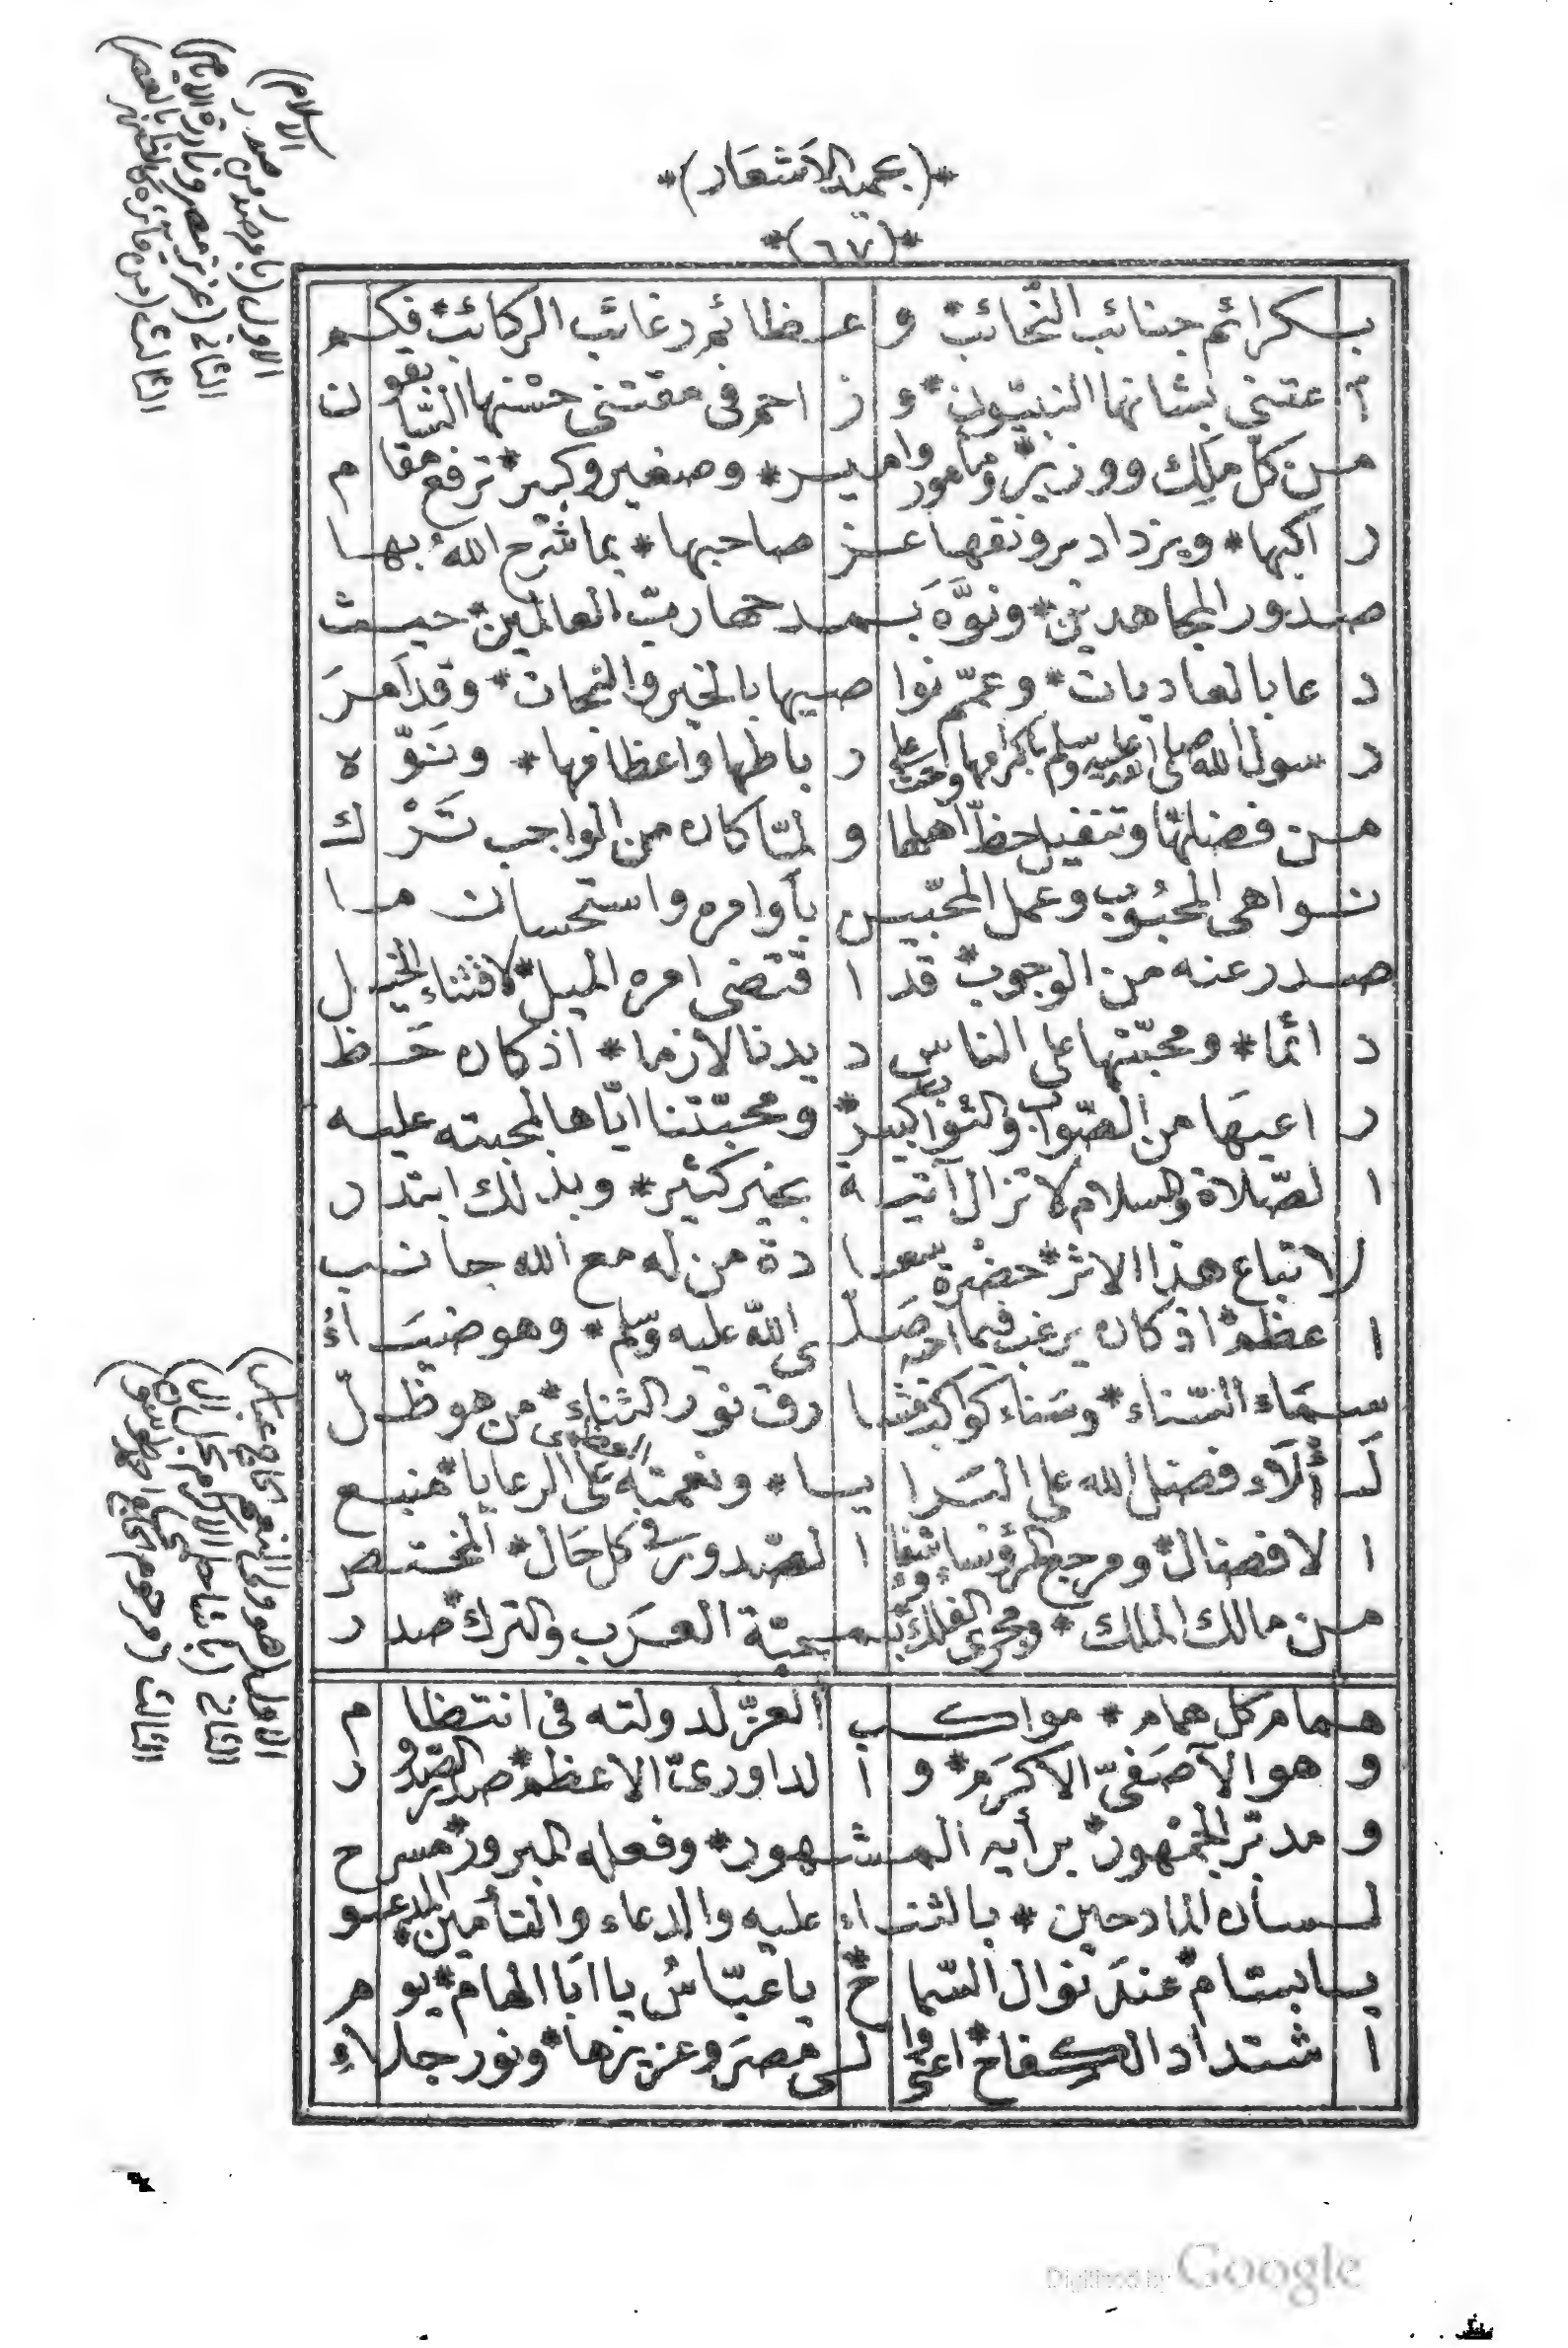 *(بحميد الاشعار)*
*(٦٧)*
بكرائم جنائب النّجائب * وعظائم رغائب الركائب * فكم
اعتنى بشانها النبيّون * وزاحم فى مقتنى حسْنها السّابقون
من كلّ ملك ووزير * ومأمور وامير * وصغير وكبير * ترفع مقام
راكبها * ويزداد برونقها عز صاحبها * بما شرح اللهُ بها
صدور المجاهدين * ونوَّهَ بمدحها ربّ العالمين * حيث
دعا بالعاديات * وعمّم نواصيها بالخير والنجات * وقد اَمرَ
رسول الله صلى الله عليه وسلم باكرامها وحث على رباطها واعظامها * ونَوّه
من فضلها وتنفيل حظّ اهلها ولمّا كان من الواجب تَرْك
نواهى المحبُوب وعمل المحبّين بأوامره واستحسان ما
صدر عنه من الوجوب * قد اقتضى امره الميل * لاقتناء الخيل
دائما * ومحبّتها على الناس ديدنا لازما * اذ كان حَظ
راعيهَا من الصّواب والثواب كبير * ومحبّتنا ايّاها لمحبته عليه
الصّلاة والسلام لا تزال آتية بخير كثير * وبذلك ابتدر
لاتباع هذا الاثر * حضرة سعادة من له مع الله جانب
اعظم * اذ كان يرغب فيما احبه صَلّى اللّه عليه وسلم * وهو ضيَاءُ
سمَاء السّناء * وسَناء كواكب مشارق نور الثناء * من هو ظلّ
لآلآء فضل الله على البَرايا * ونعمته العظمى على الرعايا * منبع
الافضال * ومرجع الرؤسا الصّدور فى كل حَال * المختص
من مالك الملك * ومجرى الفلك بمحبّة العرَب والترك * صدر
همام كل همام * مواكب العزّ لدولته فى انتظام
وهو الآصَفىّ الاكرَم * والداورىّ الاعظم * صدر الصّدور
ومدبّر الجمْهور * برأيه المشهور * وفعله المبرور * مسرح
لسان المادحين * بالثناء عليه والدعاء والتأمين * المدعو
يا بسّام * عندَ نوال السّماح * يا عبّاسُ يا ابَا الهام * يوم
اشتداد الكفاح * اعنى والى مصرَ وعزيزها * ونور جلاءِ